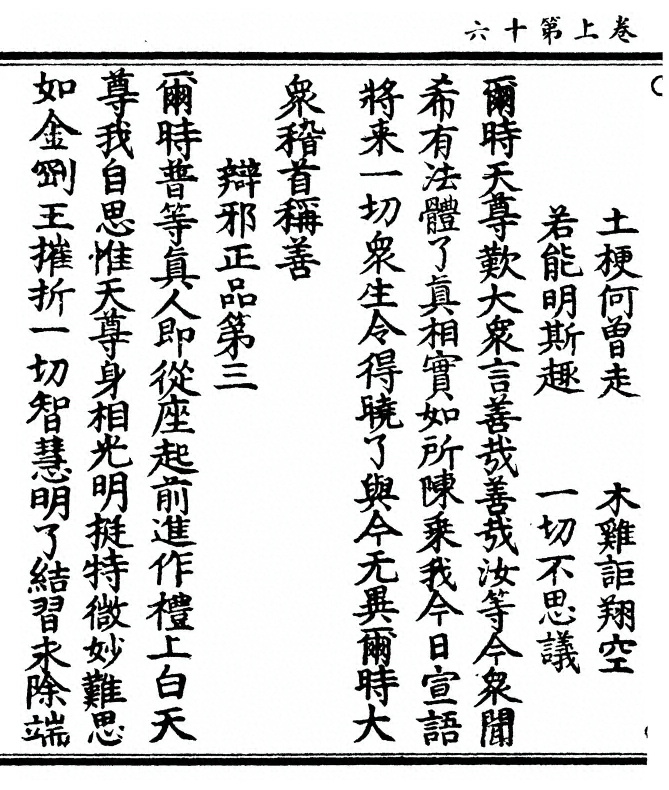 卷上第十六
土梗何曽走　木雞詎翔空
若能明斯趣　一切不思議
爾時天尊歎大衆言善㢤善㢤汝等今衆聞
希有法體了真相實如所陳乗我今日宣語
將来一切衆生令得曉了與今无異爾時大
衆稽首稱善
辯邪正品第三
爾時普等真人即從座起前進作禮上白天
尊我自思惟天尊身相光明挺特微妙難思
如金剛王摧折一切智慧明了結習未除端